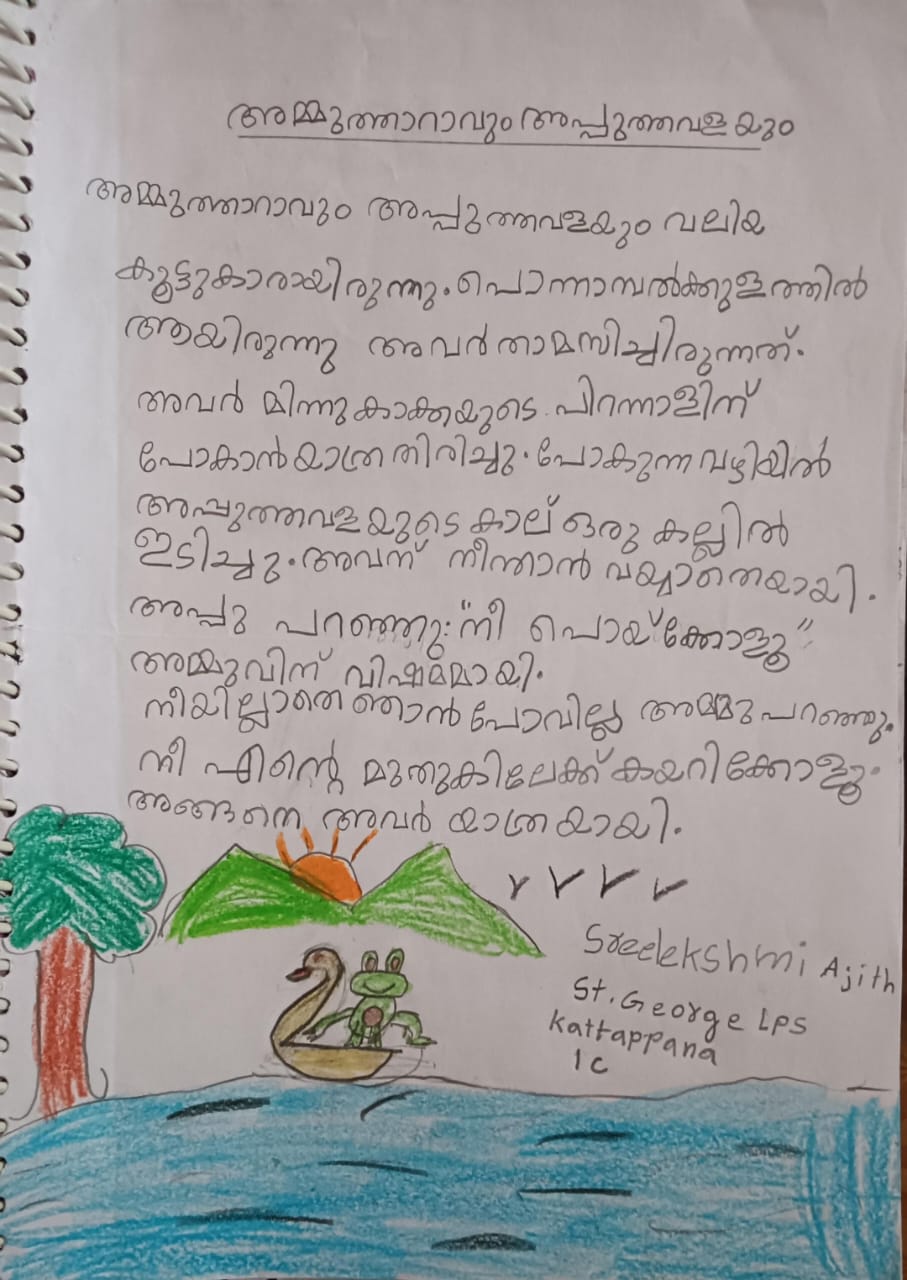 അമ്മുത്താറാവും അപ്പുത്തവളയും
അമ്മുത്താറാവും അപ്പുത്തവളയും വലിയ
കൂട്ടുകാരായിരുന്നു. പൊന്നാമ്പൽക്കുളത്തിൽ
ആയിരുന്നു അവർ താമസിച്ചിരുന്നത്.
അവർ മിന്നുകാക്കയുടെ പിറന്നാളിന്
പോകാൻ യാത്ര തിരിച്ചു. പോകുന്ന വഴിയിൽ
അപ്പുത്തവളയുടെ കാല് ഒരു കല്ലിൽ
ഇടിച്ചു. അവന് നീന്താൻ വയ്യാതെയായി.
അപ്പു പറഞ്ഞു: "നീ പൊയ്ക്കോളൂ"
അമ്മുവിന് വിഷമമായി.
നീയില്ലാതെ ഞാൻ പോവില്ല അമ്മു പറഞ്ഞു.
നീ എന്റെ മുതുകിലേക്ക് കയറിക്കോളൂ.
അങ്ങനെ അവർ യാത്രയായി.
Sreelekshmi Ajith
St. George LPS
Kattappana
1 C